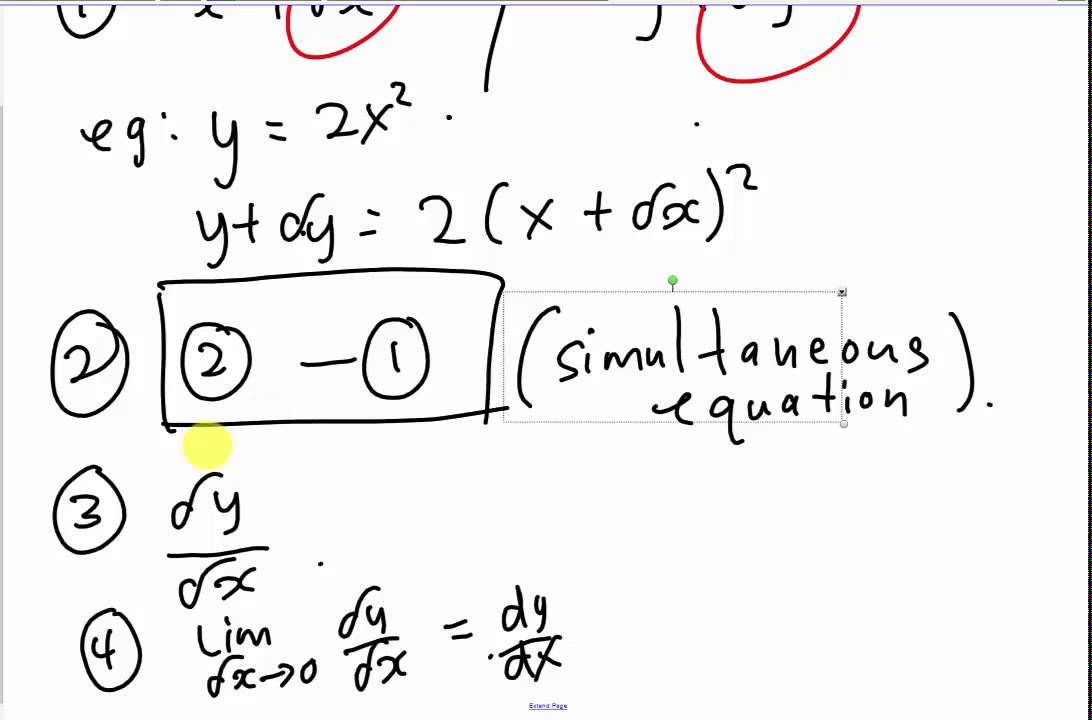 ① x + δx / y + δy
eg: y = 2x² .
y + δy = 2 (x + δx)²
② ② — ① (simultaneous
equation).
③ δy/δx .
④ Lim δx→0 δy/δx = dy/dx
Extend Page